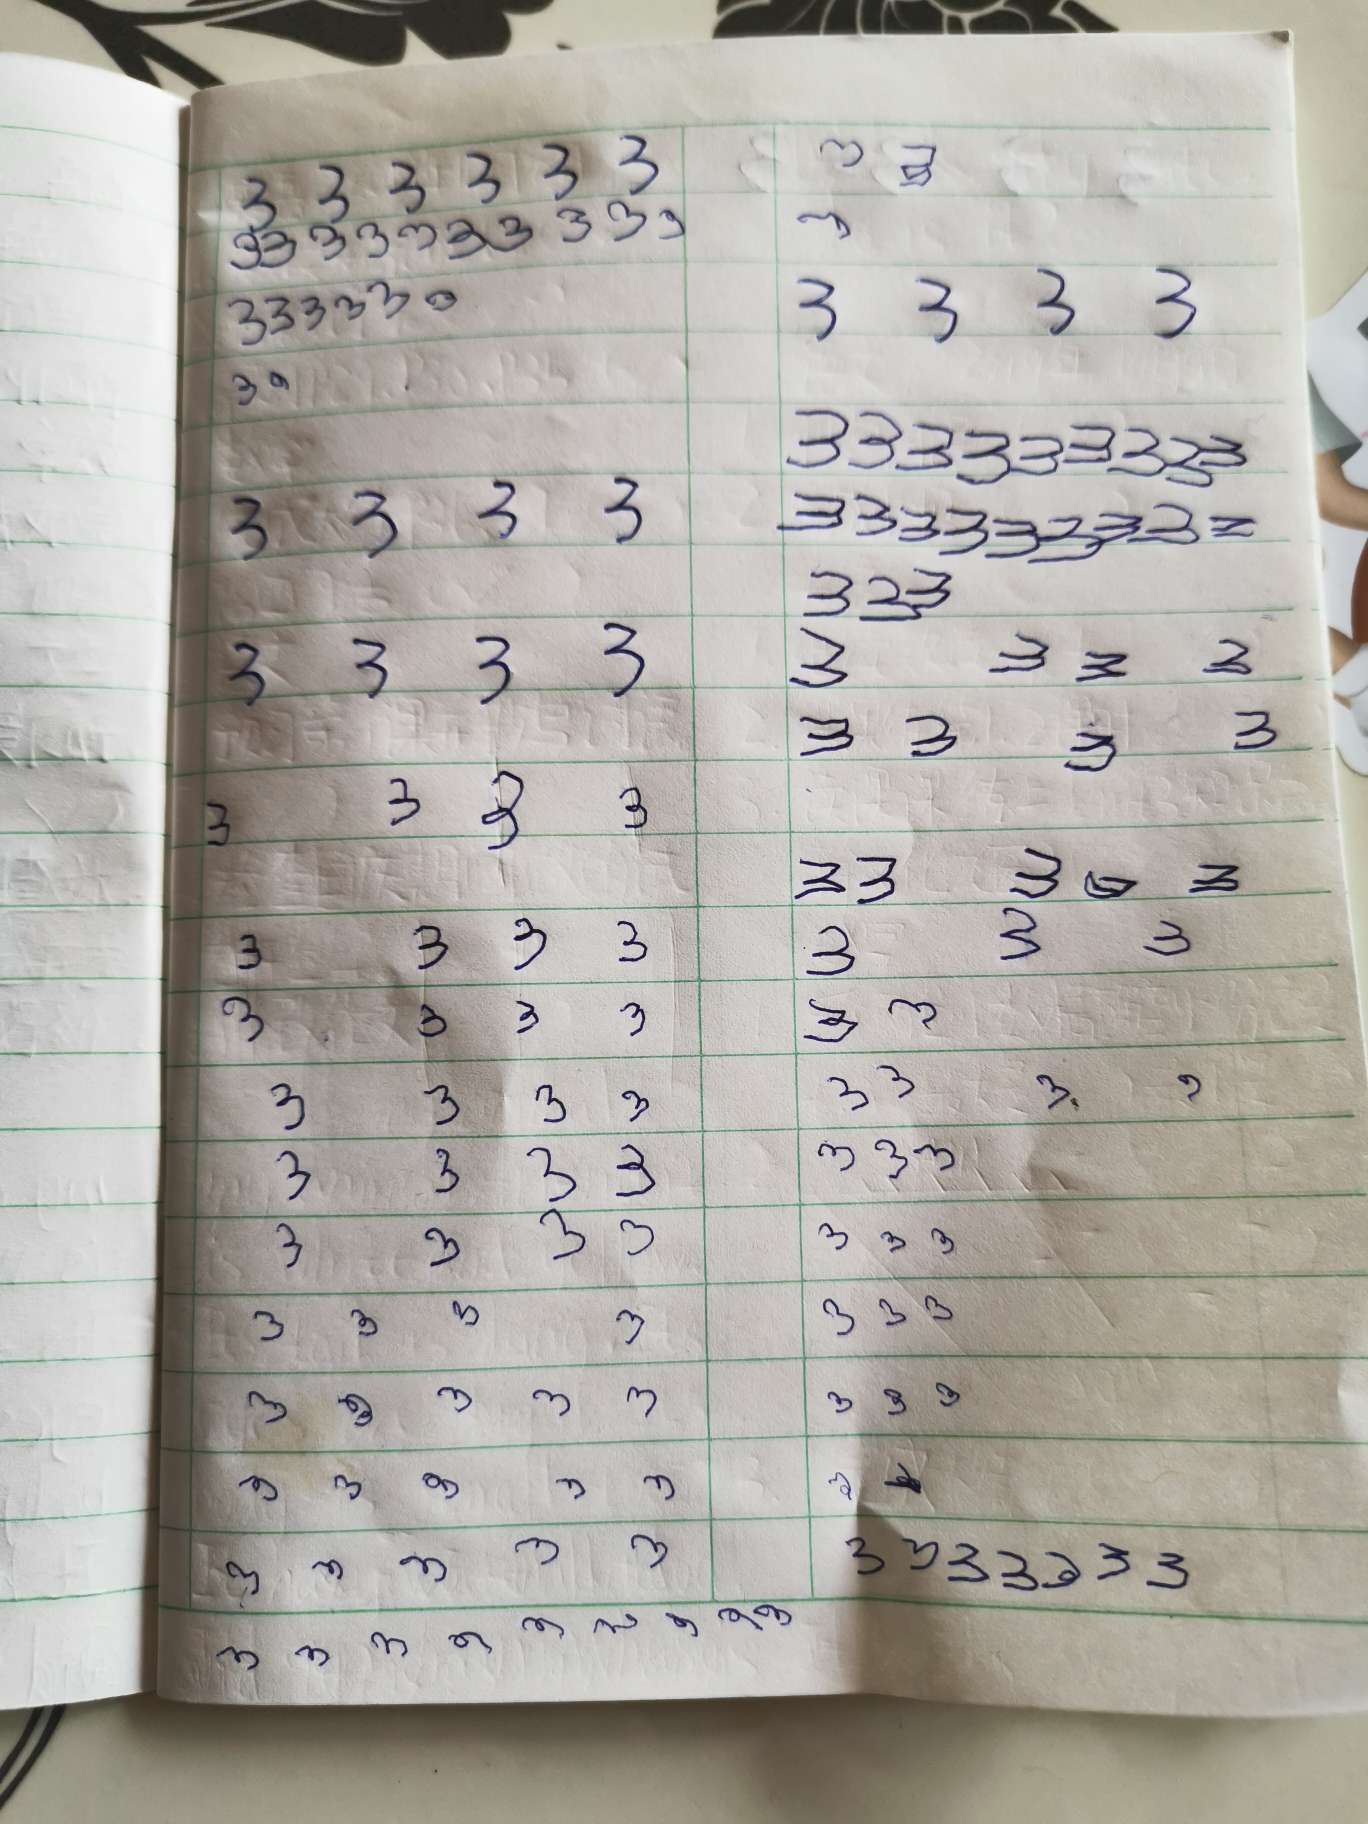 3 3 3 3 3 3
3 3 3 3 3 3 3 3 3 3
3 3 3 3 3
3
3 3 3 3
3 3 3 3
3 3 3 3
3 3 3 3
3 3 3 3
3 3 3 3
3 3 3 3
3 3 3 3
3 3 3 3
3 3 3 3 3
3 3 3 3 3
3 3 3 3 3
3 3 3 3 3 3 3 3 3
3 3
3
3 3 3 3
3 3 3 3 3 3 3 3 3
3 3 3 3 3 3 3 3
3 3 3
3 3 3 3
3 3 3 3
3 3 3 3
3 3 3
3 3
3 3 3
3 3 3
3 3 3
3 3 3
3 3 3
3
3 3 3 3 3 3 3